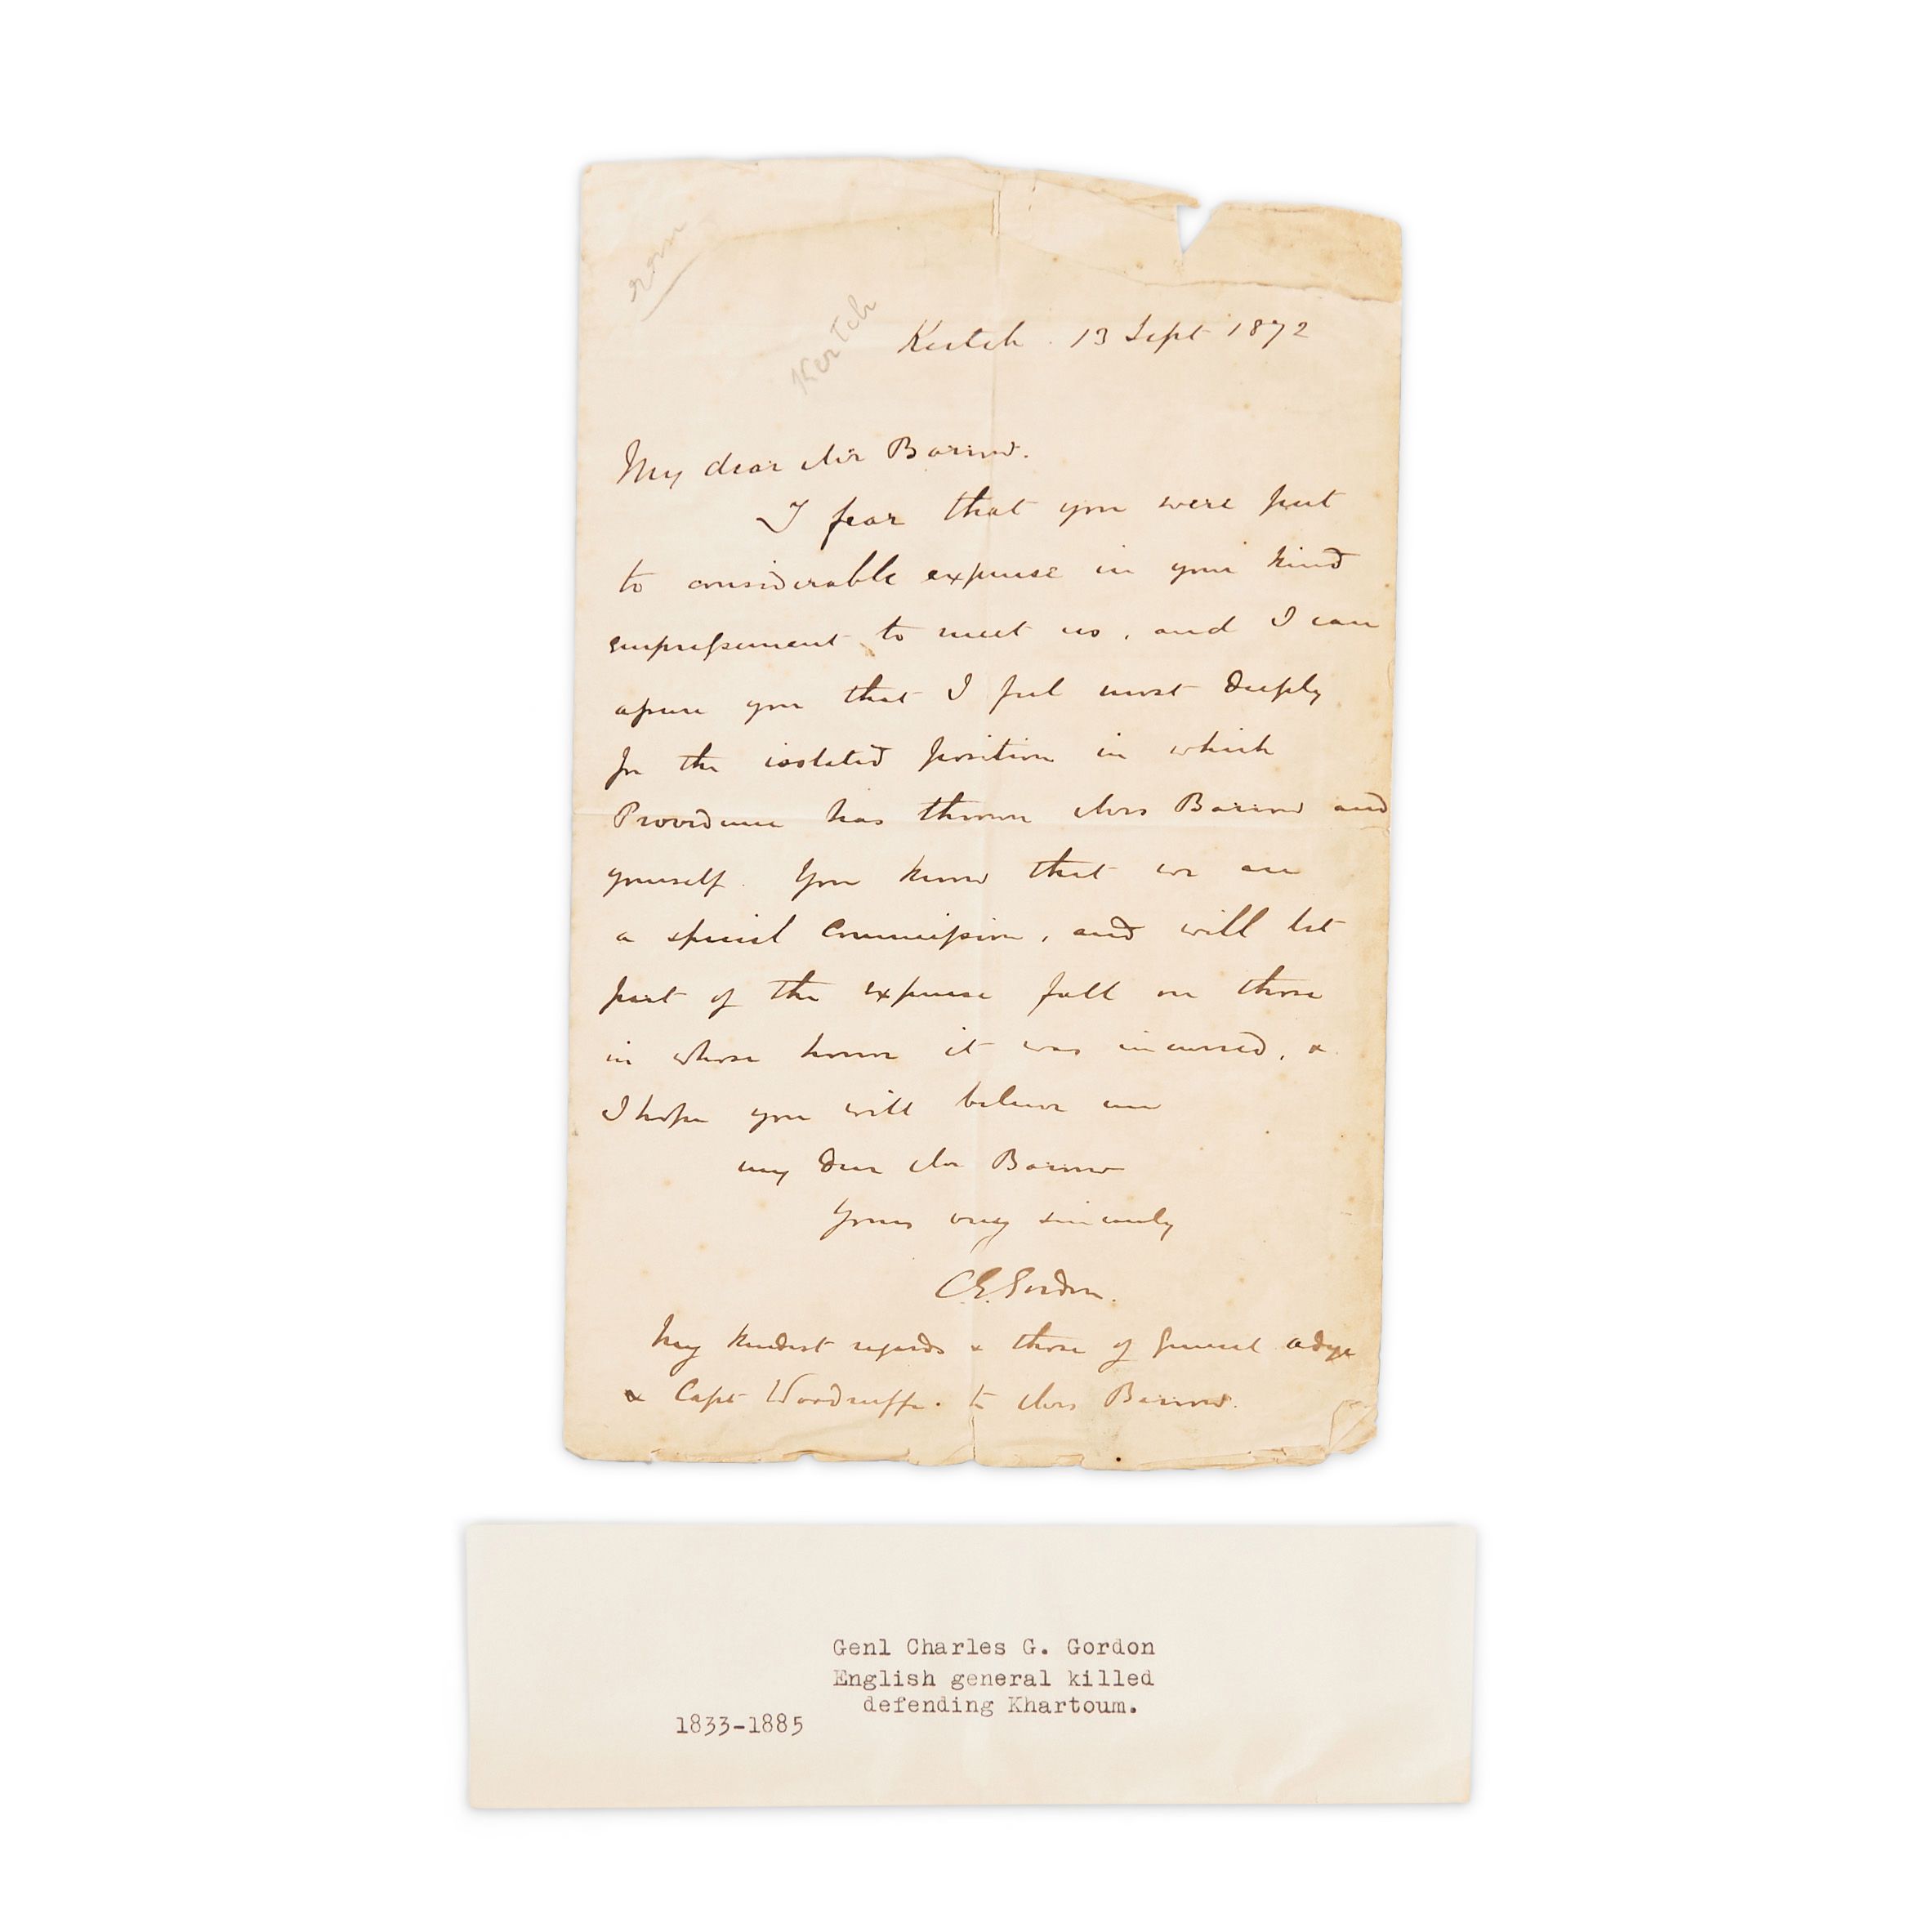 Kertch
Kertch . 13 Sept 1872
My dear Mr Barrow.
I fear that you were put
to considerable expense in your kind
empressement to meet us, and I can
assure you that I feel most deeply
for the isolated position in which
Providence has thrown Mrs Barrow and
yourself. You know that we are
a special Commission, and will let
part of the expense fall on those
in whose honor it was incurred, &
I hope you will believe me
my dear Mr Barrow
Yours very sincerely
C.G. Gordon.
My kindest regards & those of General Adye
& Capt Woodruffe. to Mrs Barrow.
Genl Charles G. Gordon
English general killed
defending Khartoum.
1833-1885